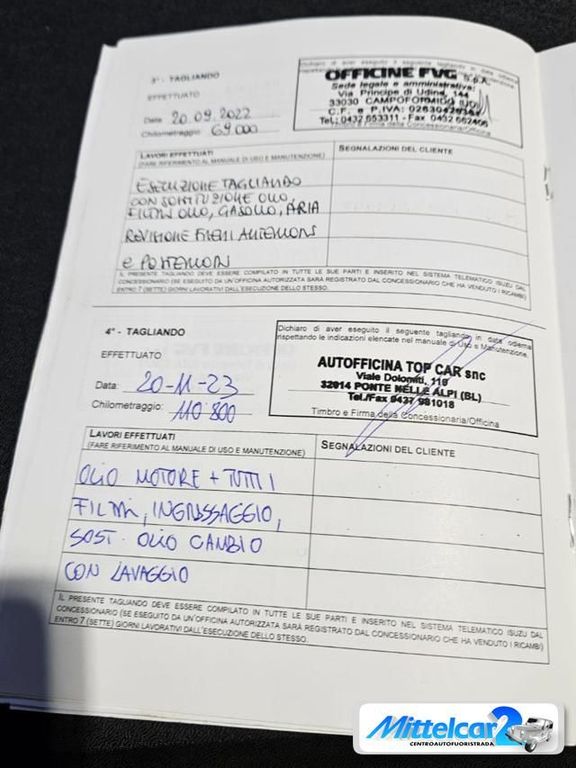 3° - TAGLIANDO
EFFETTUATO
Data: 20.09.2022
Chilometraggio: 69.000
Dichiaro di aver eseguito il seguente tagliando in data odierna
OFFICINE FVG S.p.A.
Sede legale e amministrativa:
Via Principe di Udine, 144
33030 CAMPOFORMIDO (UD)
C.F. e P.IVA:
Tel.: 0432 653311 - Fax 0432 662406
Timbro e Firma della Concessionaria/Officina
LAVORI EFFETTUATI
(FARE RIFERIMENTO AL MANUALE DI USO E MANUTENZIONE)
SEGNALAZIONI DEL CLIENTE
ESECUZIONE TAGLIANDO
CON SOSTITUZIONE OLIO,
FILTRI OLIO, GASOLIO, ARIA
REVISIONE FRENI ANTERIORI
e POSTERIORI
IL PRESENTE TAGLIANDO DEVE ESSERE COMPILATO IN TUTTE LE SUE PARTI E INSERITO NEL SISTEMA TELEMATICO ISUZU DAL
CONCESSIONARIO (SE ESEGUITO DA UN'OFFICINA AUTORIZZATA SARÀ REGISTRATO DAL CONCESSIONARIO CHE HA VENDUTO I RICAMBI)
ENTRO 7 (SETTE) GIORNI LAVORATIVI DALL'ESECUZIONE DELLO STESSO.
4° - TAGLIANDO
EFFETTUATO
Data: 20-11-23
Chilometraggio: 110 800
Dichiaro di aver eseguito il seguente tagliando in data odierna
rispettando le indicazioni elencate nel manuale di Uso e Manutenzione.
AUTOFFICINA TOP CAR snc
Viale Dolomiti, 119
32014 PONTE NELLE ALPI (BL)
Tel./Fax 0437 981018
Timbro e Firma della Concessionaria/Officina
LAVORI EFFETTUATI
(FARE RIFERIMENTO AL MANUALE DI USO E MANUTENZIONE)
SEGNALAZIONI DEL CLIENTE
OLIO MOTORE + TUTTI
FILTRI, INGRASSAGGIO,
SOST. OLIO CAMBIO
CON LAVAGGIO
IL PRESENTE TAGLIANDO DEVE ESSERE COMPILATO IN TUTTE LE SUE PARTI E INSERITO NEL SISTEMA TELEMATICO ISUZU DAL
CONCESSIONARIO (SE ESEGUITO DA UN'OFFICINA AUTORIZZATA SARÀ REGISTRATO DAL CONCESSIONARIO CHE HA VENDUTO I RICAMBI)
ENTRO 7 (SETTE) GIORNI LAVORATIVI DALL'ESECUZIONE DELLO STESSO.
Mittelcar2
CENTROAUTOFUORISTRADA